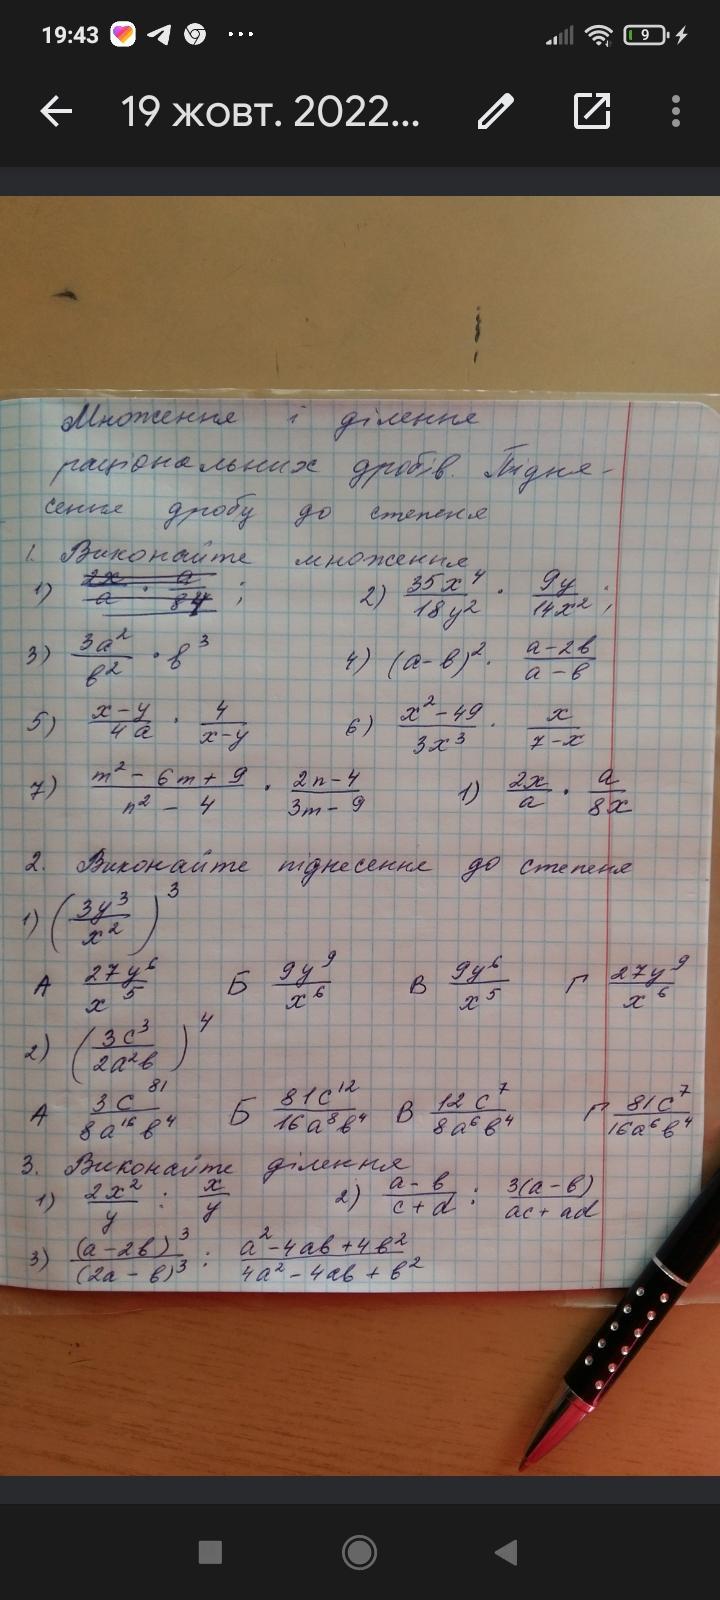 19:43
9
19 жовт. 2022...
Множення і ділення
раціональних дробів. Підне-
сення дробу до степеня
1. Виконайте множення
1) ; 2) 35x⁴/18y² · 9y/14x² ;
3) 3a²/b² · b³ 4) (a-b)² · a-2b/a-b
5) x-y/4a · 4/x-y 6) x²-49/3x³ · x/7-x
7) m²-6m+9/n²-4 · 2n-4/3m-9 1) 2x/a · a/8x
2. Виконайте піднесення до степеня
1) (3y³/x²)³
А 27y⁶/x⁵ Б 9y⁹/x⁶ В 9y⁶/x⁵ Г 27y⁹/x⁶
2) (3c³/2a²b)⁴
А 3c⁸¹/8a¹⁶b⁴ Б 81c¹²/16a⁸b⁴ В 12c⁷/8a⁶b⁴ Г 81c⁷/16a⁶b⁴
3. Виконайте ділення
1) 2x²/y : x/y 2) a-b/c+d : 3(a-b)/ac+ad
3) (a-2b)³/(2a-b)³ : a²-4ab+4b²/4a²-4ab+b²